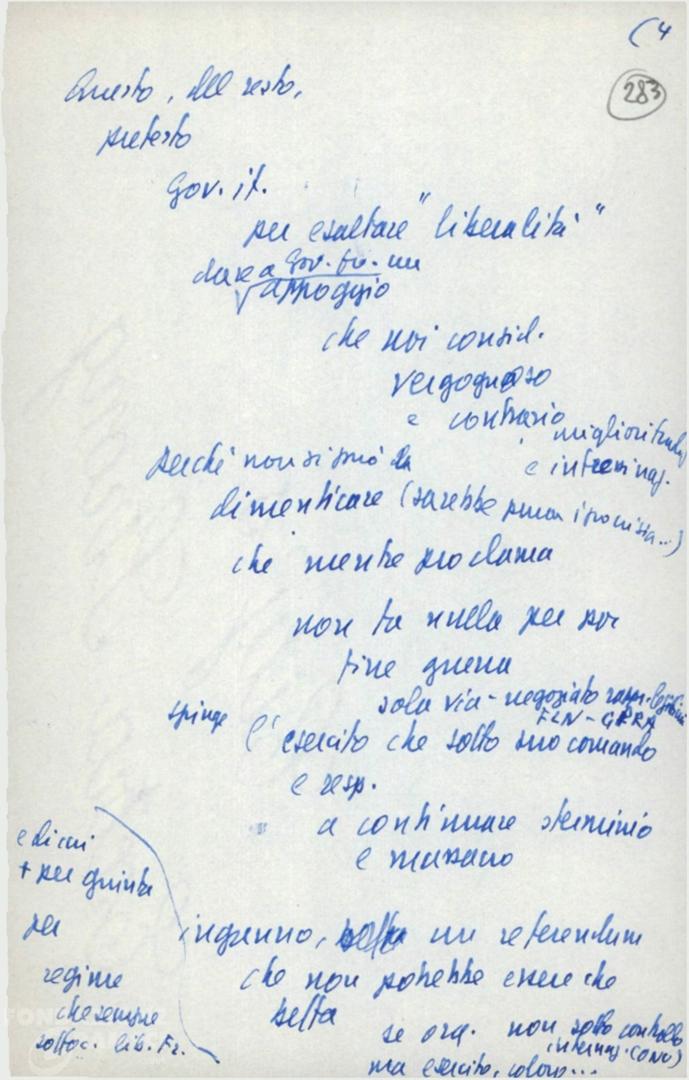 (4
283
Questo, del resto,
pretesto
Gov. it.
per esaltare "liberalità"
dare a Gov. fr. un
appoggio
che noi consid.
vergognoso
e contrario
migliori trad.
e interessi naz.
perché non si può
dimenticare (sarebbe pura ipocrisia...)
che mentre proclama
non fa nulla per por
fine guerra
sola via - negoziato rapp. legittimi
FLN - GPRA
spinge
l'esercito che sotto suo comando
e resp.
a continuare sterminio
e massacro
e di cui
+ per giunta
per
regime
che sempre
soffoc. lib. Fr.
inganno, un referendum
che non potrebbe essere che
beffa
se org. non sotto controllo
internaz. (ONU)
ma esercito, coloro...